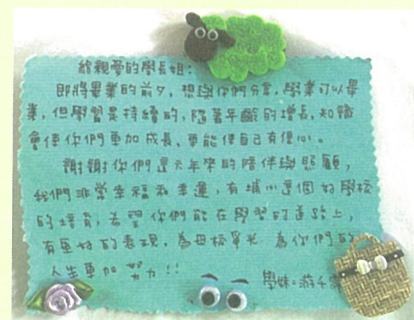 給親愛的學長姐：
即將畢業的前夕，想與你們分享，學業可以畢
業，但學習是持續的，隨著年齡的增長，知識
會使你們更加成長、更能使自己有信心。
謝謝你們這六年來的陪伴與照顧，
我們非常幸福和幸運，有埔心這個好學校
的培育，希望你們能在學習的道路上，
有更好的表現，為母校爭光，為你們的
人生更加努力！！
學妹：游千